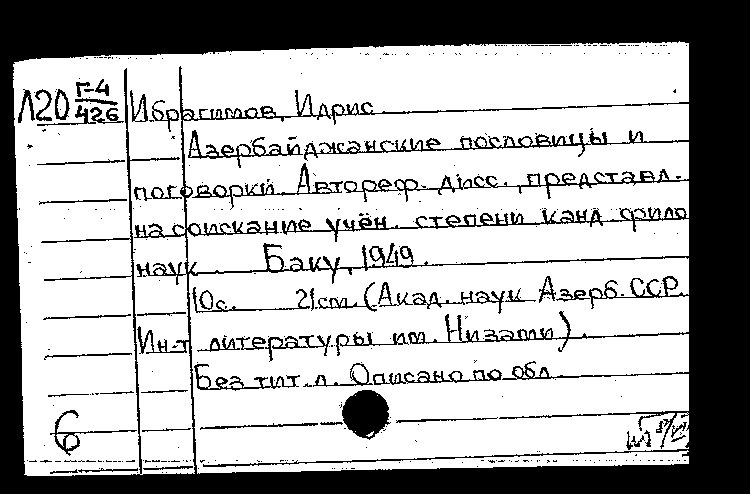 Л20 Г-4/426 Ибрагимов, Идрис
Азербайджанские пословицы и
поговорки. Автореф. дисс., представл.
на соискание учён. степени канд фило
наук. Баку, 1949.
10с. 21см. (Акад. наук Азерб. ССР.
Ин-т литературы им. Низами).
Без тит. л. Описано по обл.
6